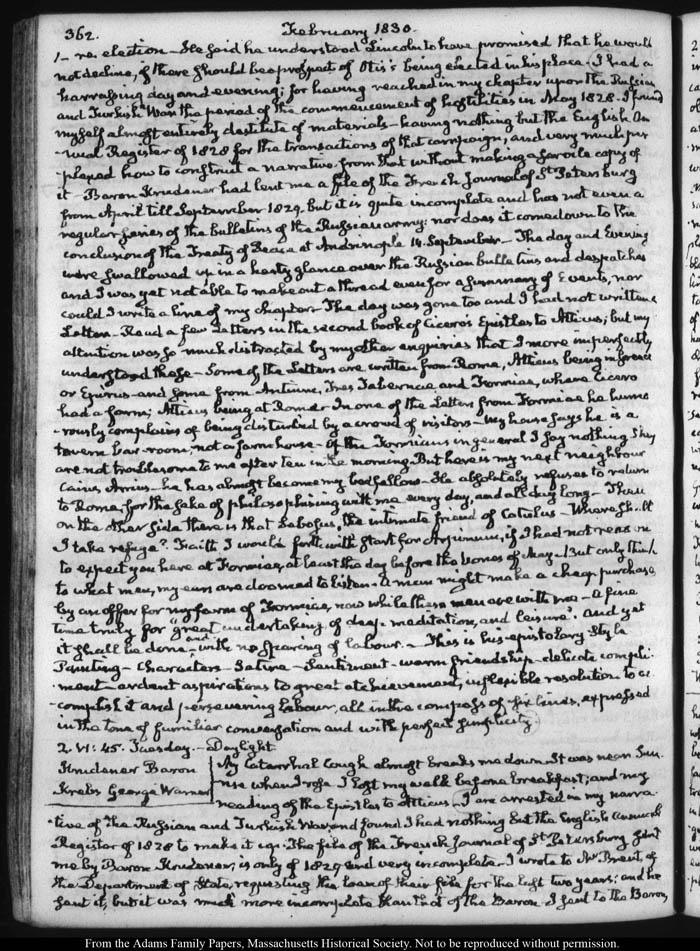 362.
February 1830.
1— re-election— He said he understood Lincoln to have promised that he would
not decline, if there should be a prospect of Otis's being elected in his place. I had a
harrassing day and evening; for having reached in my chapter upon the Russian
and Turkish War the period of the commencement of hostilities in May 1828. I found
myself almost entirely destitute of materials— having nothing but the English An
-nual Register of 1828 for the transactions of that campaign; and very much per
-plexed how to construct a narrative from that without making a servile copy of
it— Baron Krudener had lent me a file of the French Journal of St Petersburg
from April till September 1829. but it is quite incomplete and has not even a
regular series of the bulletins of the Russian army: nor does it come down to the
conclusion of the Treaty of Peace at Andrinople 14. September— The day and Evening
were swallowed up in a hasty glance over the Russian bulletins and despatches
and I was yet not able to make out a thread even for a summary of Events, nor
could I write a line of my chapter— The day was gone too and I had not written a
Letter— Read a few Letters in the second book of Cicero's Epistles to Atticus; but my
attention was so much distracted by my other enquiries that I more imperfectly
understood these— Some of the Letters are written from Rome, Atticus being in Greece
or Epirus— and some from Antium, Tres Tabernae and Formiae, where Cicero
had a farm; Atticus being at Rome— In one of the Letters from Formiae he humo
-rously complains of being disturbed by a crowd of visitors— My house says he is a
tavern bar-room; not a farm house— Of the Formians in general I say nothing They
are not troublesome to me after ten in the morning. But here is my next neighbour
Caius Arrius— he has almost become my bedfellow. He absolutely refuses to return
to Rome, for the sake of philosophising with me every day, and all day long— Then
on the other side there is that Sebosus, the intimate friend of Catulus— Where shall
I take refuge? Faith I would forthwith start for Arpinum, if I had not reason
to expect you here at Formiae, at least the day before the nones of May. But only think
to what men, my ears are doomed to listen. A man might make a cheap purchase,
by an offer for my farm of Formiae, now while these men are with me— A fine
time truly for "great undertaking of deep meditation, and leisure". And yet
it shall be done, and with no sparing of labour.— This is his epistolary Style
Painting— Characters— Satire— Sentiment— warm friendship— delicate compli-
ment— ardent aspirations to great atchievement, inflexible resolution to ac
-complish it and persevering labour, all in the compass of six lines, expressed
in the tone of familiar conversation and with perfect simplicity
2. VI: 45. Tuesday.— Daylight.
Krudener Baron
Krebs George Warner
My Catarrhal Cough almost breaks me down. It was near Sun-
rise when I rose I lost my walk before breakfast; and my
reading of the Epistles to Atticus— I am arrested in my narra-
-tive of the Russian and Turkish War, and found I had nothing but the English Annual
Register of 1828 to make it up. The file of the French Journal of St Petersburg sent
me by Baron Krudener, is only of 1829 and very incomplete— I wrote to Mr Brent, of
the Department of State, requesting the loan of their file for the last two years: and he
sent it, but it was much more incomplete than that of the Baron. I sent to the Baron,
From the Adams Family Papers, Massachusetts Historical Society. Not to be reproduced without permission.